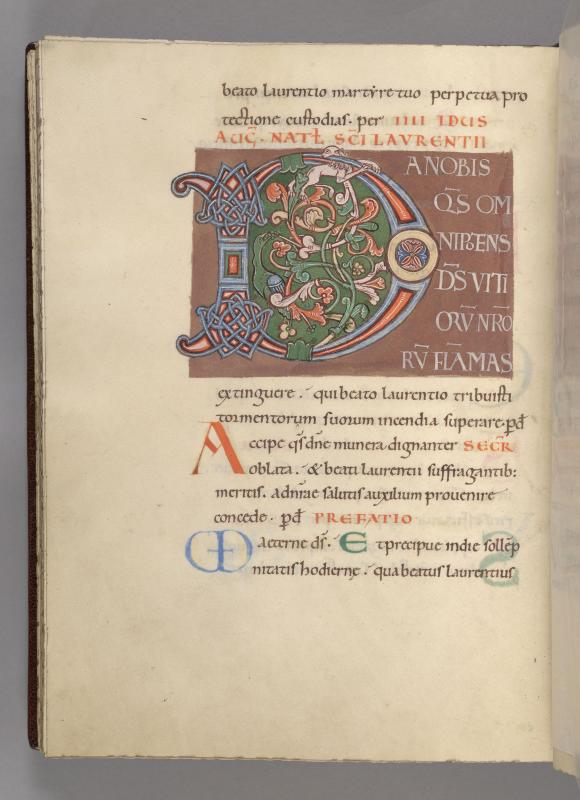 beato Laurentio martẏre tuo perpetua pro
tectione custodias· per IIII IDUS
AUḠ· NATL̄ SC̄I LAVRENTII
DANOBIS
Q̄S OM
NIPOTENS
D̄S VITI
ORŪ NR̄O
RV̄ FLĀMAS
extinguere · qui beato laurentio tribuisti
tormentorum suorum incendia superare· p̄d
Accipe q̄s dn̄e munera dignanter SECR̄
oblata · & beati laurentii suffragantib:
meritis· ad nr̄ae salutis auxilium provenire
concede· p̄d PREFATIO
aeterne ds̄· Et precipue in die sollēp
nitatis hodiernę · qua beatus laurentius